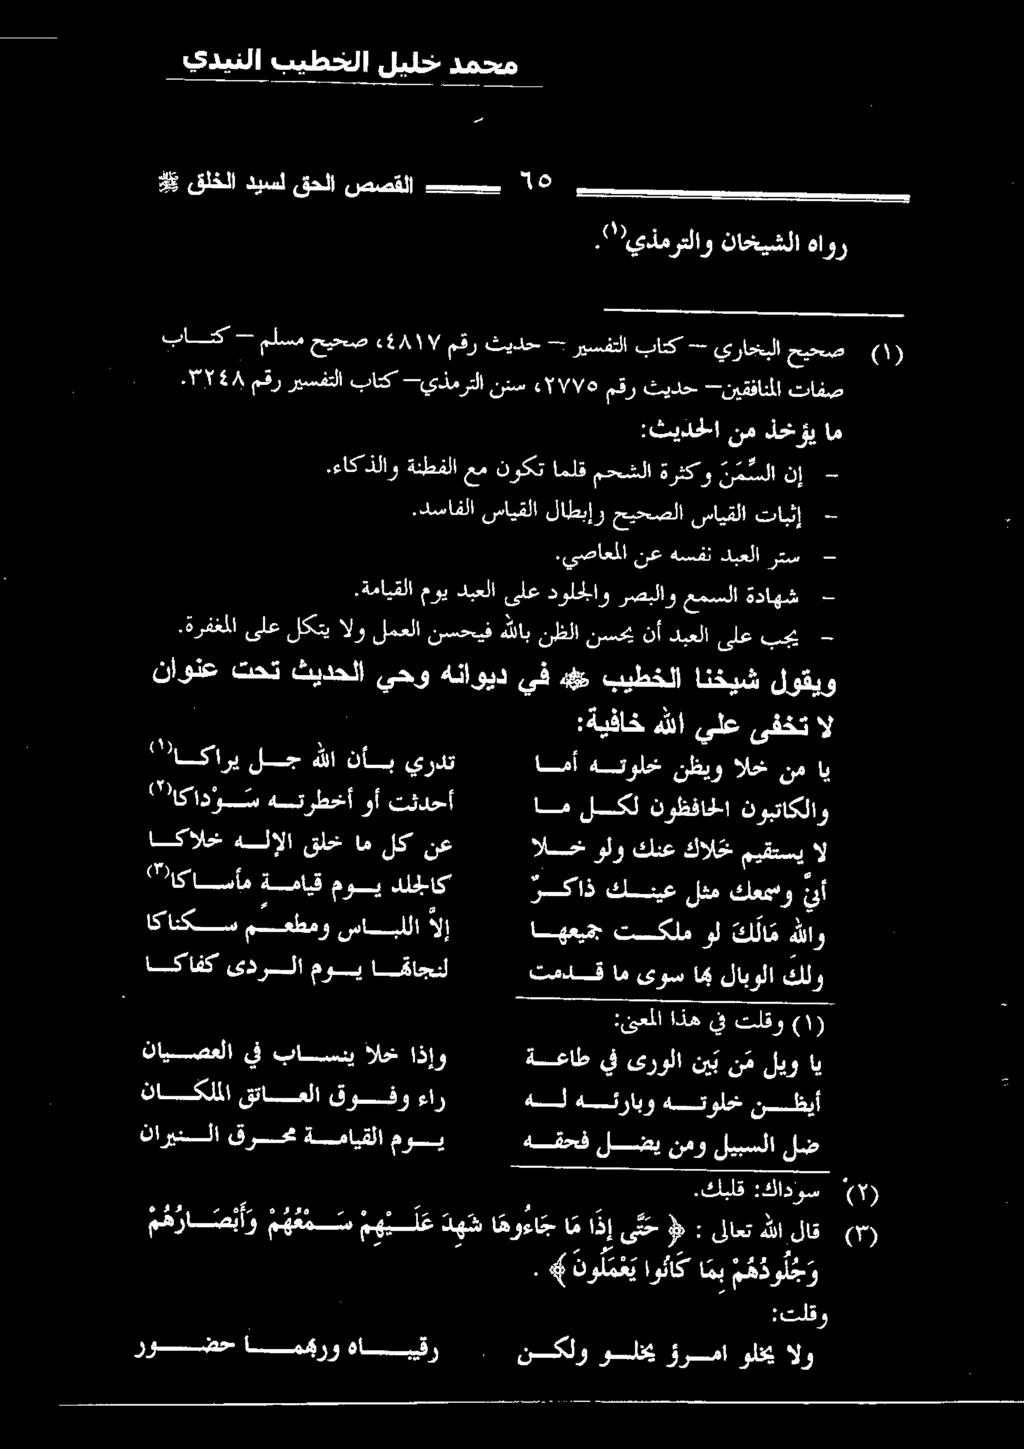 محمد خليل الخطيب النيدي
القصص الحق لسيد الخلق ﷺ ٦٥
رواه الشيخان والترمذي(١).
(١) صحيح البخاري – كتاب التفسير – حديث رقم ٤٨١٧، صحيح مسلم – كتــاب
صفات المنافقين– حديث رقم ٢٧٧٥، سنن الترمذي– كتاب التفسير رقم ٣٢٤٨.
ما يؤخذ من الحديث:
– إن السِّمَنَ وكثرة الشحم قلما تكون مع الفطنة والذكاء.
– إثبات القياس الصحيح وإبطال القياس الفاسد.
– ستر العبد نفسه عن المعاصي.
– شهادة السمع والبصر والجلود على العبد يوم القيامة.
– يجب على العبد أن يحسن الظن بالله فيحسن العمل ولا يتكل على المغفرة.
ويقول شيخنا الخطيب في ديوانه وحي الحديث تحت عنوان
لا تخفى علي الله خافية:
يا من خلا ويظن خلوته أما تدري بأن الله جل يراكا(١)
والكاتبون الحافظون لكل ما أحدثت أو أخطرته سَوْداكا(٢)
لا يستقيم خَلاك عنك ولو خلا عن كل ما خلق الإله خلاكا
أنيّ وسمعك مثل عينك ذاكرٌ كالجلد يوم قيامة مأساكا(٣)
والله مَالَكَ لو ملكت جميعها إلاَّ اللباس ومطعم سكناكا
ولك الوبال بها سوى ما قدمت لنجاتها يوم الردى كفاكا
(١) وقلت في هذا المعنى:
يا ويل مَن بَين الورى في طاعة وإذا خلا ينساب في العصيان
أيظن خلوته وبارئه له راء وفوق العاتق الملكان
ضل السبيل ومن يضل فحقه يوم القيامة محرق النيران
(٢) سوداك: قلبك.
(٣) قال الله تعالى : ﴿ حَتَّى إِذَا مَا جَاءُوهَا شَهِدَ عَلَيْهِمْ سَمْعُهُمْ وَأَبْصَارُهُمْ
وَجُلُودُهُمْ بِمَا كَانُوا يَعْمَلُونَ ﴾ .
وقلت:
ولا يخلو امرؤ يخلو ولكن رقيباه وربهما حضور